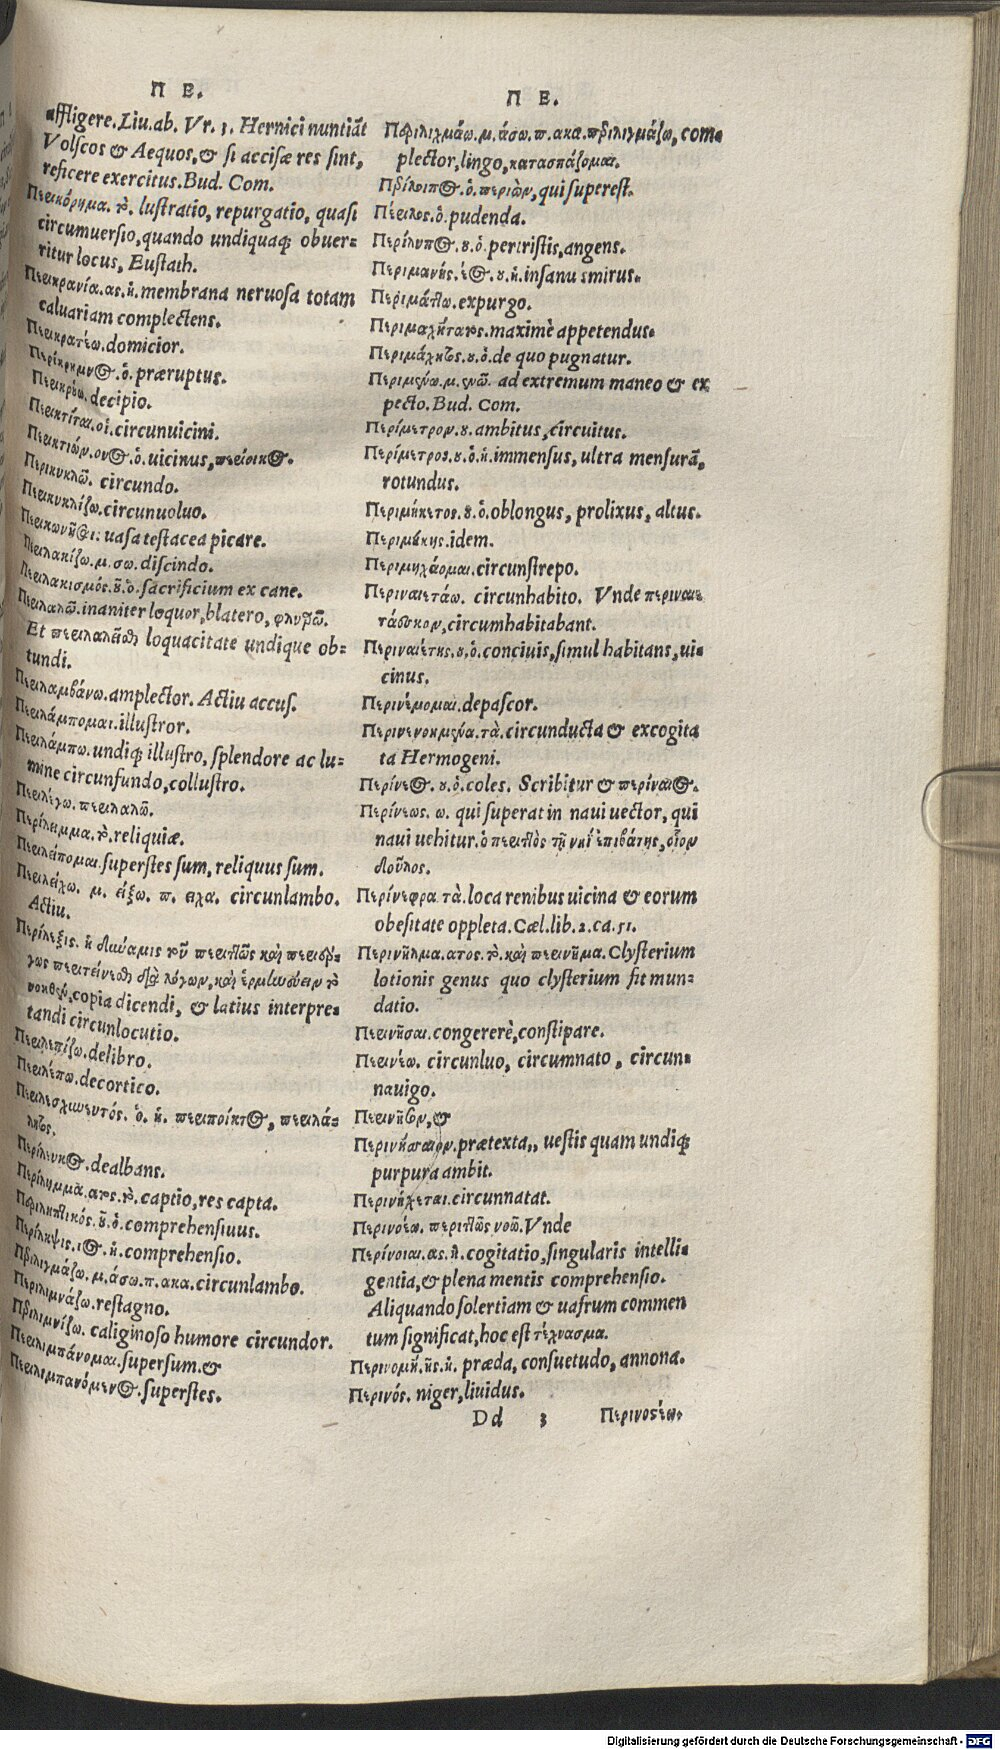 Π Ε.
affligere. Liu. ab. Vr. 3. Hernici nuntiãt
Volscos & Aequos, & si accisæ res sint,
reficere exercitus. Bud. Com.
Περικόρημα. τὸ. lustratio, repurgatio, quasi
circumuersio, quando undiquaq; obuer=
ritur locus, Eustath.
Περικρανία. ας. ἡ. membrana neruosa totam
caluariam complectens.
Περικρατέω. domicior.
Περίκρημνος. ὁ. præruptus.
decipio.
Περικτίται. οἱ. circunuicini.
Περικτιών. ονος. ὁ. uicinus, περίοικος.
Περικυκλῶ. circundo.
Περικυκλίζω. circunuoluo.
uasa testacea picare.
Περιλακίζω. μ. σω. discindo.
Περιλακισμός. οῦ. ὁ. sacrificium ex cane.
Περιλαλῶ. inaniter loquor, blatero, φλυαρῶ.
Et περιλαλεῖσθαι loquacitate undique ob=
tundi.
Περιλαμβάνω. amplector. Actiu accus.
Περιλάμπομαι. illustror.
Περιλάμπω. undiq; illustro, splendore ac lu=
mine circunfundo, collustro.
Περιλέγω. περιλαλῶ.
Περίλειμμα. τὸ. reliquiæ.
Περιλείπομαι. superstes sum, reliquus sum.
Περιλείχω. μ. είξω. π. ειχα. circunlambo.
Actiu.
Περίλεξις. ἡ δύναμις τοῦ περιττῶς καὶ
περιτείνεσθαι διὰ λόγων, καὶ ἑρμηνεύειν τὸ
νοηθέν, copia dicendi, & latius interpre=
tandi circunlocutio.
Περιλεπίζω. delibro.
Περιλέπω. decortico.
Περιλεσχηνευτός. ὁ. ἡ. περιποίητος, περιλά=
λητος.
Περίλευκος. dealbans.
Περίλημμα. ατος. τὸ. captio, res capta.
Περιληπτικός. οῦ. ὁ. comprehensiuus.
Περίληψις. ιος. ἡ. comprehensio.
Περιλιγμάζω. μ. άσω. π. ακα. circunlambo.
Περιλιμνάζω. restagno.
Περιλιμνίζω. caliginoso humore circundor.
Περιλιμπάνομαι. supersum. &
Περιλιμπανόμενος. superstes.
Π Ε.
Περιλιχμάω. μ. άσω. π. ακα. περιλιγμάζω, com=
plector, lingo, κατασπάζομαι.
Περίλοιπος. ὁ. περιὼν, qui superest.
Πέριλος. ὁ. pudenda.
Περίλυπος. ου. ὁ. pertristis, angens.
Περιμανής. έος. ου. ἡ. insanus mirus.
Περιμάττω. expurgo.
Περιμαχήτατος. maximè appetendus.
Περιμάχητος. ου. ὁ. de quo pugnatur.
Περιμένω. μ. ενῶ. ad extremum maneo & ex
pecto. Bud. Com.
Περίμετρον. ου. ambitus, circuitus.
Περίμετρος. ου. ὁ. ἡ. immensus, ultra mensurã,
rotundus.
Περιμήκετος. ου. ὁ. oblongus, prolixus, altus.
Περιμήκης. idem.
Περιμηχάομαι. circunstrepo.
Περιναιετάω. circunhabito. Vnde περιναιε
τάασκον, circumhabitabant.
Περιναιέτης. ου. ὁ. conciuis, simul habitans, ui=
cinus.
Περινέμομαι. depascor.
Περινενοημένα. τὰ. circunducta & excogita
ta Hermogeni.
Περίνεος. ου. ὁ. coles. Scribitur & περίναιος.
Περίνεως. ω. qui superat in naui uector, qui
naui uehitur. ὁ περιττὸς τῇ νηῒ ἐπιβάτης, οἷον
δοῦλος.
Περίνεφρα τὰ. loca renibus uicina & eorum
obesitate oppleta. Cæl. lib. 2. ca. 51.
Περινήλμα. ατος. τὸ. καὶ περινῆμα. Clysterium
lotionis genus quo clysterium fit mun=
datio.
Περινῆσαι. congererè, constipare.
Περινέω. circunluo, circumnato, circun=
nauigo.
Περινῆστον, &
Περινήσαιον. prætexta, uestis quam undiq;
purpura ambit.
Περινήχεται. circunnatat.
Περινοέω. περιττῶς νοῶ. Vnde
Περίνοια. ας. ἡ. cogitatio, singularis intelli=
gentia, & plena mentis comprehensio.
Aliquando solertiam & uafrum commen
tum significat, hoc est τέχνασμα.
Περινομή. ῆς. ἡ. præda, consuetudo, annona.
Περινός. niger, liuidus.
Dd 3 Περινοσέω.
Digitalisierung gefördert durch die Deutsche Forschungsgemeinschaft - DFG